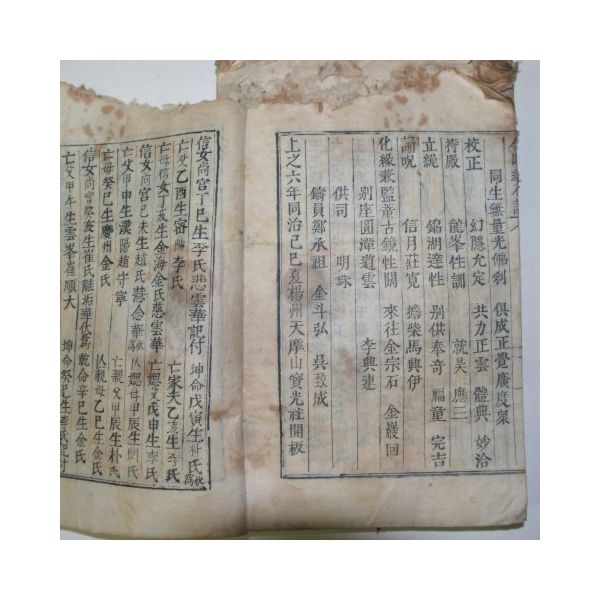 同生無量光佛刹 俱成正覺廣度衆
校正 幻隱允定 共力正雲 體典 妙洽
龍峯性訓 就昊 應三
持殿 錦湖達性 別供奉奇 福童 完吉
誦呪 信月莊寬 擔柴馬興伊
化緣兼監董古鏡性闊 來往金宗石 金巖回
別座圓潭道雲 李興連
供司 明珠
鑄員鄭承祖 金斗弘 吳致成
上之六年同治己巳夏楊州天摩山寶光社開板
信女尚宮丁巳生李氏悲雲華記付 坤命戊寅生 氏伏爲
亡父乙酉生密陽李氏 亡家夫乙亥生 氏
亡母信女丁亥生金海金氏慈雲華 亡 戊申生李氏
信女尚宮己未生趙氏慧念華 甲辰生 氏
亡父甲申生漢陽趙守寧 亡親父甲辰生朴氏
亡母癸巳生慶州金氏 親母乙巳生金氏
信女尚宮癸亥生崔氏離垢華伏爲 乾命辛巳生金氏
亡父甲午生雲峯崔順大 坤命癸巳生李氏